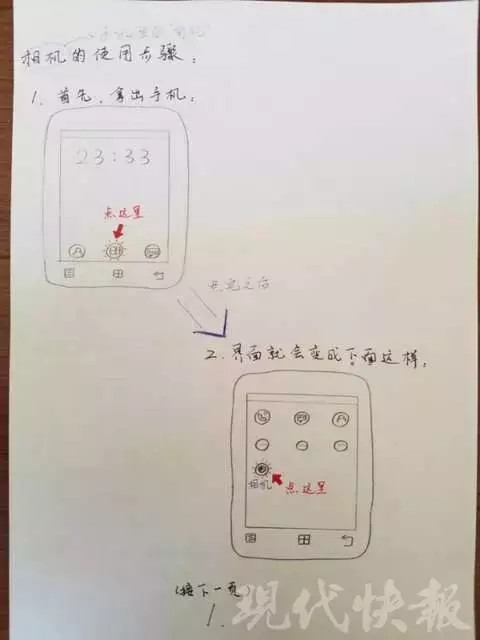 相机的使用步骤：
1. 首先，拿出手机：
23:33
点这里
点完之后
2. 界面就会变成下面这样：
相机
点这里
(接下一页)
1.
现代快報